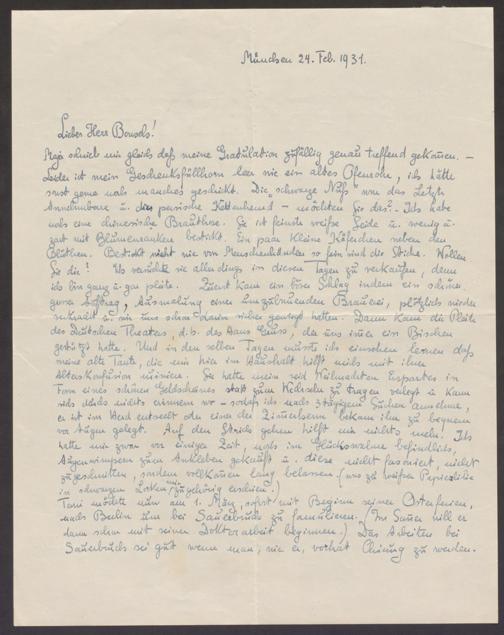 München 24. Feb. 1931.
Lieber Herr Bonsels!
Maja schrieb mir gleich daß meine Gratulation zufällig genau treffend gekommen. –
Leider ist mein Geschenksfüllhorn leer wie ein altes Ofenrohr, ich hätte
sonst gerne noch manches geschickt. Die "schwarze Näh" war das Letzte
Annehmbare u. das persische Kettenhemd – möchten Sie das? – Ich habe
noch eine chinesische Brauthose. Sie ist feinste weiße Seide u. wenig u.
zart mit Blumenranken bestickt. Ein paar kleine Käferchen neben den
Blüthen. Bestickt nicht wie von Menschenhänden so fein sind die Stiche. Wollen
Sie die? Ich versuchte sie allerdings in diesen Tagen zu verkaufen, denn
ich bin ganz u. gar pleite. Zuerst kam ein böser Schlag indem ein schöner
guter Auftrag, Ausmalung einer umzubauenden Brauerei, plötzlich wieder
u. wir uns schon daran sicher gewiegt hatten. Dann kam die Pleite
des Deutschen Theaters, d. h. des Hans Gruss, der uns immer ein Bischen
gestützt hatte. Und in den selben Tagen mußte ich einsehen lernen daß
meine alte Tante, die mir hier im Haushalt hilft mich mit ihrer
Alterskonfusion ruinieren. Sie hatte mein seid Weihnachten Erspartes in
Form eines schönen Goldscheines statt zum Wechseln zu tragen verlegt u. kann
sich durch nichts erinnern wo – schlafe ich nach 3 tägigem Suchen annehme,
er ist im Herd entseelt oder einer der Zimmerherrn bekam ihn zu bequem
vor Augen gelegt. Auf den Strich gehen hilft mir nichts mehr. Ich
hatte mir zwar vor einiger Zeit, noch im Glückswahne befindlich,
Augenwimpern zum Ankleben gekauft u. diese nicht fasoniert, nicht
zugeschnitten, sondern vollkommen lang belassen (was zu weißer
in schwarzen Locken mir zugehörig erschien)
Tani möchte nun am 1. März, sofort mit Beginn seiner Osterferien,
nach Berlin um bei Sauerbruch zu famulieren. (Im Sommer will er
dann schon mit seiner Doktorarbeit beginnen.) Das Arbeiten bei
Sauerbruch sei gut wenn man, wie er, vorhat Chirurg zu werden.